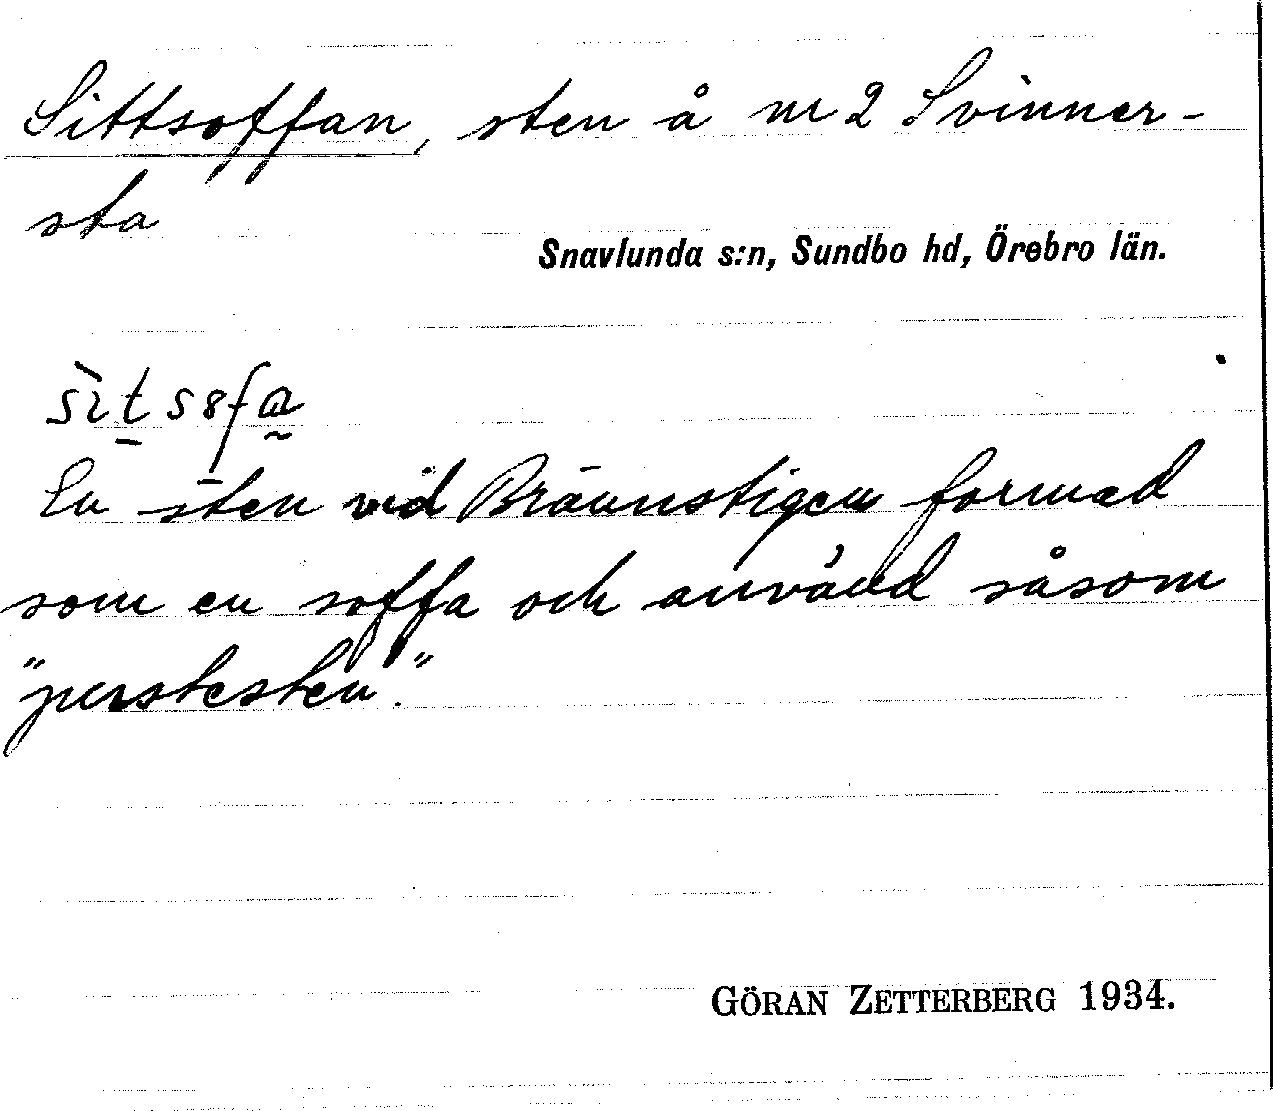 Sittsoffan, sten å nr 2 Svinner-
sta
Snavlunda s:n, Sundbo hd, Örebro län.
En sten vid Bräunstigen formad
som en soffa och använd såsom
"purstesten".
GÖRAN ZETTERBERG 1934.